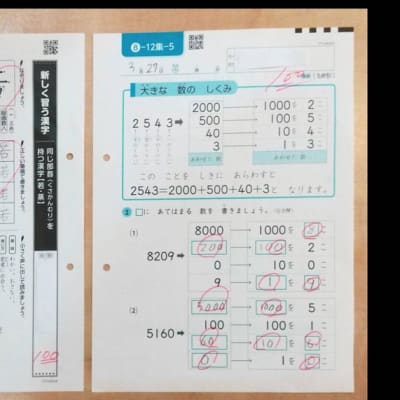 新しく習う漢字
同じ部首(くさかんむり)を
持つ漢字(若・蒸)
100
8-12集-5
3月29日
100
大きな 数の しくみ
2543
2000→1000を2こ
500→100を5こ
40→10を4こ
3→1を3こ
あわせた数 あわせた数
このことを しきに あらわすと
2543=2000+500+40+3と なります。
□に あてはまる 数を 書きましょう。
(1)
8209
8000 1000を 8こ
200 100を 2こ
0 10を 0こ
9 1を 9こ
(2)
5160
5000 1000を 5こ
100 100を 1こ
60 10を 6こ
0 1を 0こ